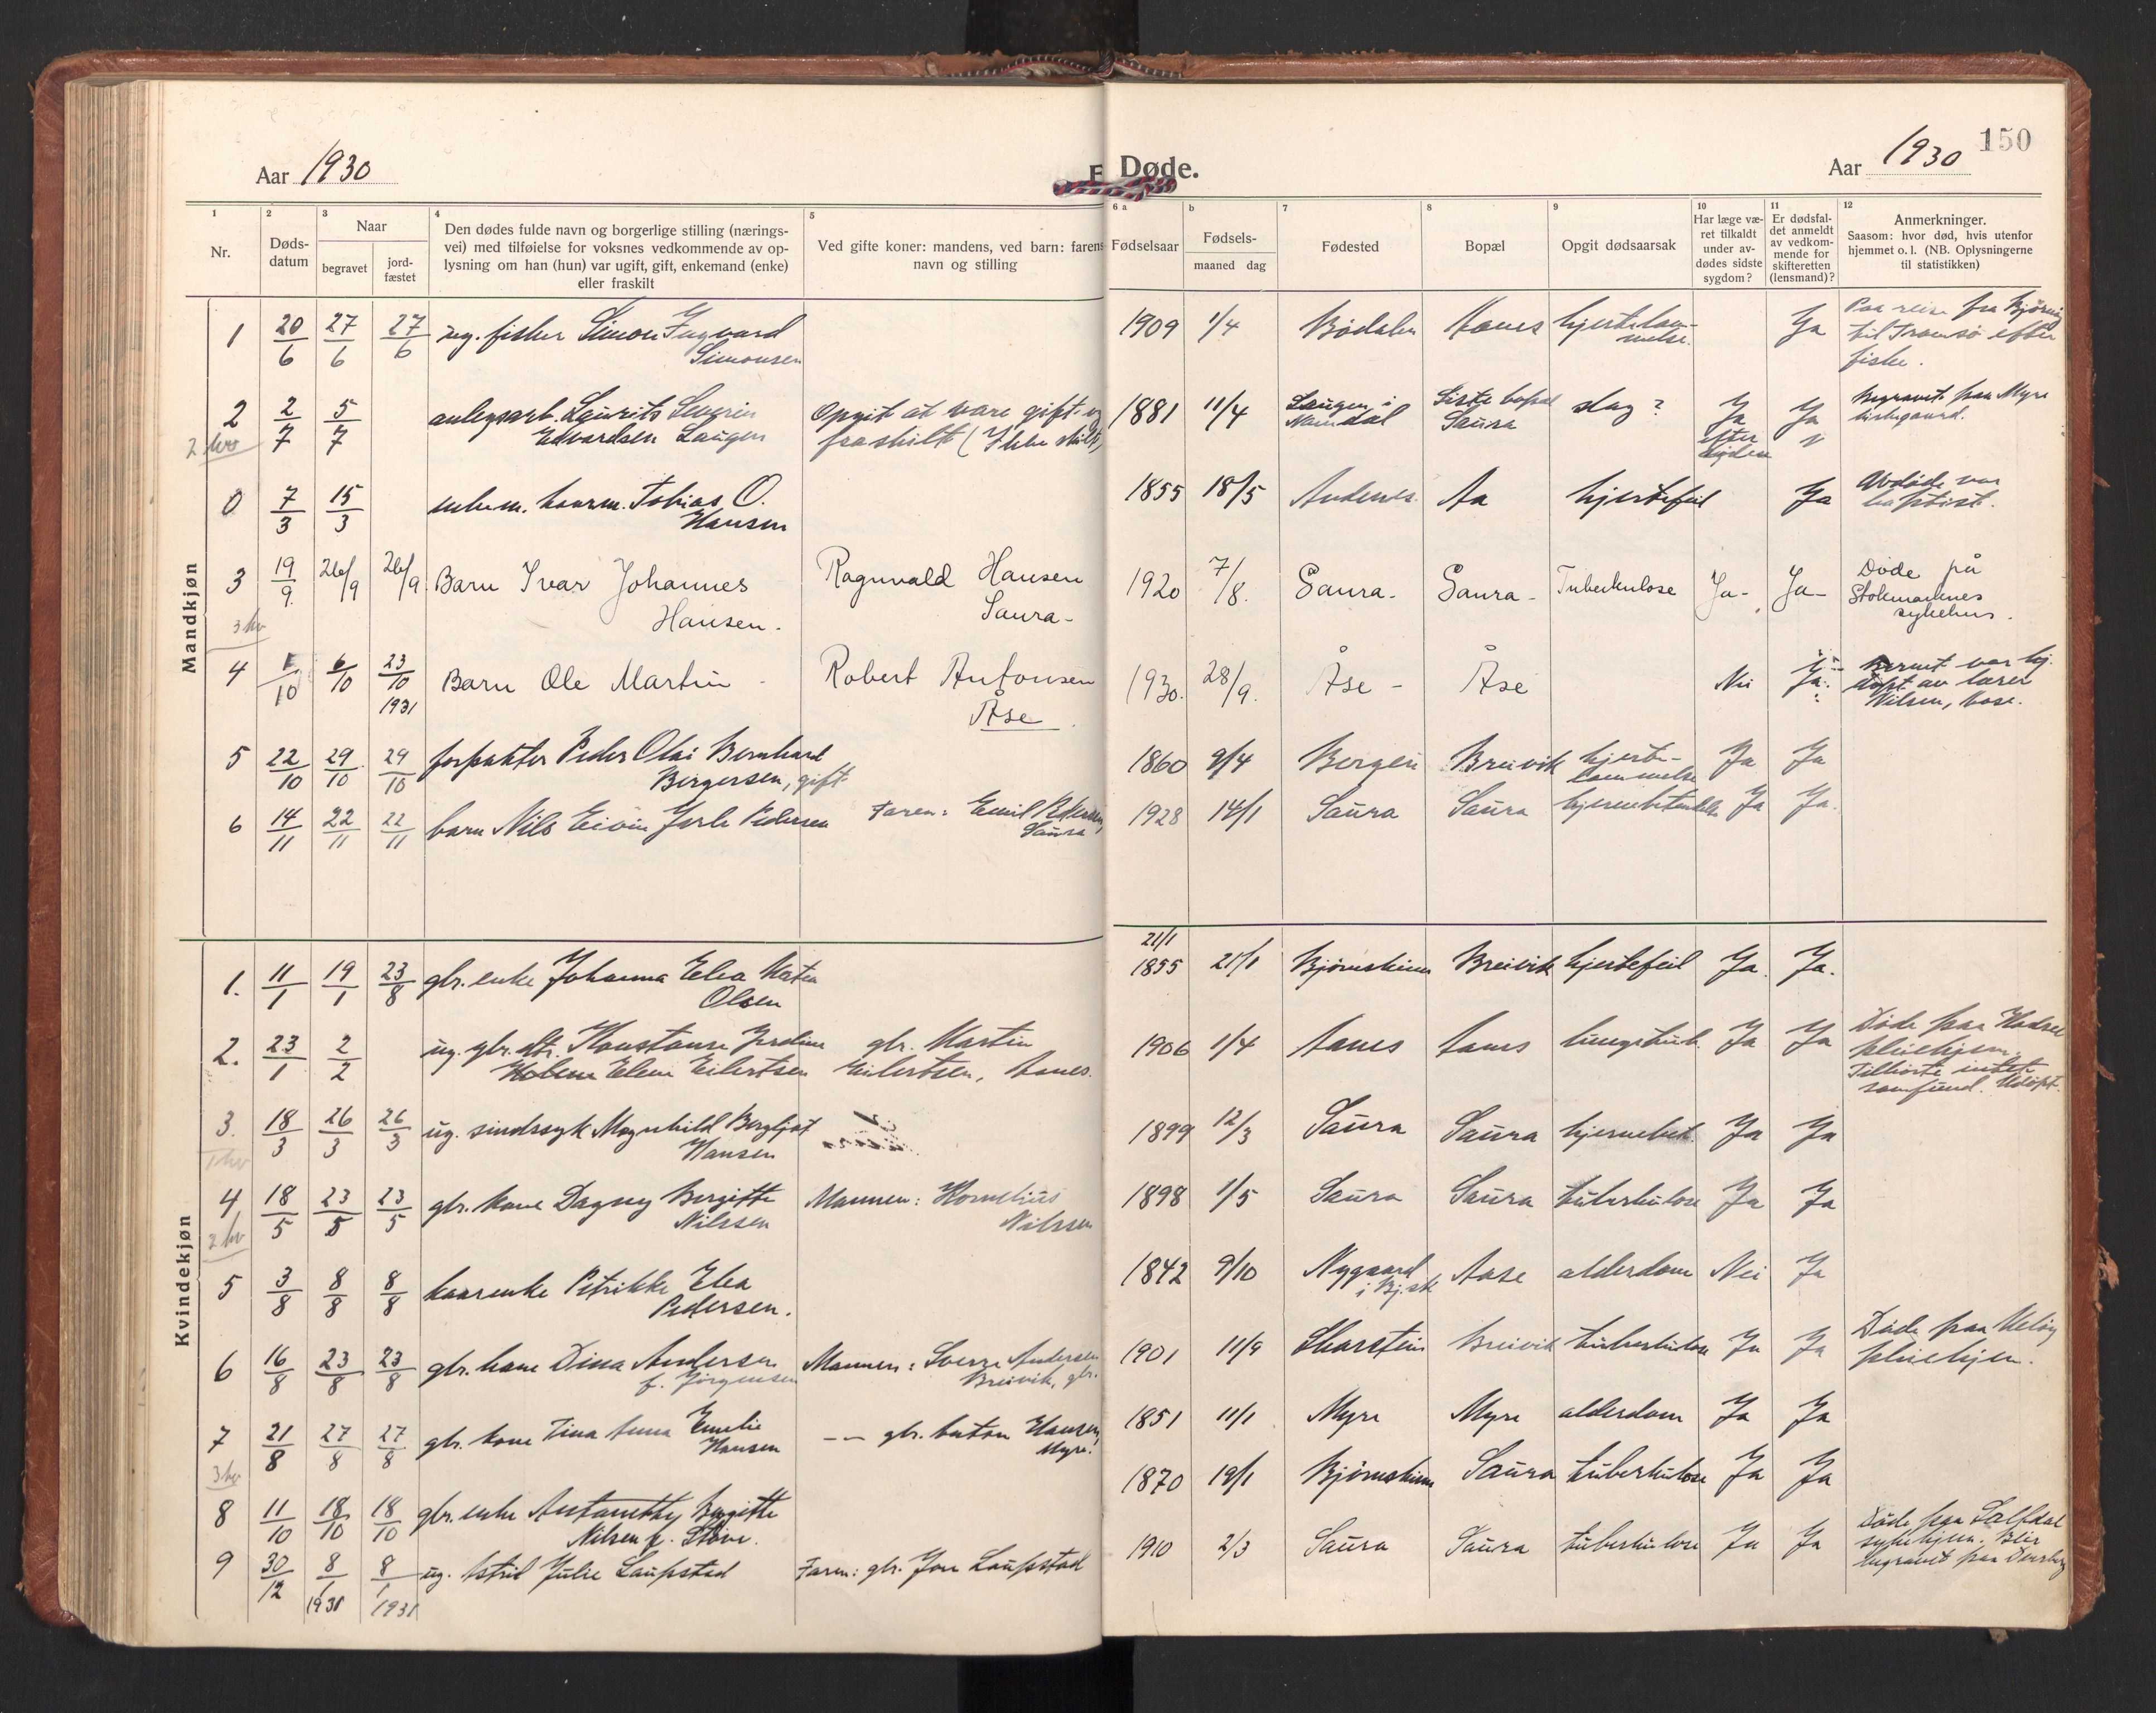 150
Aar 1930
E. Døde.
Aar 1930
1 2 3 4 5 6 a b 7 8 9 10 11 12
Nr.
Døds-
datum
Naar
begravet
jord-
fæstet
Den dødes fulde navn og borgerlige stilling (nærings-
vei) med tilføielse for voksnes vedkommende av op-
lysning om han (hun) var ugift, gift, enkemand (enke)
eller fraskilt
Ved gifte koner: mandens, ved barn: farens
navn og stilling
Fødselsaar
Fødsels-
maaned dag
Fødested
Bopæl
Opgit dødsaarsak
Har læge væ-
ret tilkaldt
under av-
dødes sidste
sygdom?
Er dødsfal-
det anmeldt
av vedkom-
mende for
skifteretten
(lensmand)?
Anmerkninger.
Saasom: hvor død, hvis utenfor
hjemmet o. l. (NB. Oplysningerne
til statistikken)
Mandkjøn
1 20/6 27/6 27/6 ug. fisker Simon Ingvard 1909 1/4 Bødalen Aanes hjertelam- Ja Paa reise fra Bjørnøy
Simonsen melse. til Tromsø efter
fiske.
2 2/7 5/7 anlegsarb. Laurits Severin Opgit at være gift og 1881 11/4 Laugen i Siste bopæl slag? Ja Ja Begravet paa Myre
2 kv Edvardsen Laugen fraskilt (Ikke skilt) Namdal Saura efter kirkegaard.
døden
0 7/3 15/3 enkem. kaarm. Tobias O. 1855 18/5 Andenes Aa hjertefeil Ja Avdøde var
Hansen baptist.
3 19/9 26/9 26/9 Barn Ivar Johannes Ragnvald Hansen 1920 7/8. Saura- Saura- Tuberkulose Ja- Ja- Døde på
3 kv Hansen. Saura- Stokmarknes
sykehus.
4 1/10 6/10 23/10 1931 Barn Ole Martin - Robert Antonsen 1930. 28/9. Åse - Åse Nei Ja Barnet var hj.
Åse døpt av lærer
Nilsen, Aase.
5 22/10 29/10 29/10 forpakter Peder Olai Bernhard 1860 9/4 Bergen Breivik hjerte- Ja Ja
Bergersen, gift lammelse
6 14/11 22/11 22/11 barn Nils Eivin Jarle Pedersen Faren: Emil Pedersen, 1928 14/1 Saura Saura hjernebetændelse Ja Ja.
Saura
Kvindekjøn
21/1
1. 11/1 19/1 23/8 gbr. enke Johanna Elea Katrin 1855 21/1 Bjørnskinn Breivik hjertefeil Ja. Ja.
Olsen
2. 23/1 2/2 ug. gbr. dtr. Konstanse Jordine gbr. Martin 1906 1/4 Aanes Aanes lungetub. Ja Ja Døde paa Hadsel
Elene Eilertsen Eilertsen, Aanes. pleiehjem.
Tilhørte intet
samfund. Udøpt.
3. 18/3 26/3 26/3 ug. sindssyk Magnhild Bergljot 1899 12/3 Saura Saura hjernebet. Ja Ja
1 kv Hansen
4 18/5 23/5 23/5 gbr. kone Dagny Bergitte Mannen: Kornelius 1898 1/5 Saura Saura tuberkulose Ja Ja
2 kv Nilssen Nilssen
5 3/8 8/8 8/8 kaarenke Petrikke Elea 1842 9/10 Nygaard Aase alderdom Nei Ja
Pedersen. i Bj.sk
6 16/8 23/8 23/8 gbr. kone Dina Andersen Mannen: Sverre Andersen 1901 11/9 Skarstein Breivik tuberkulose Ja Ja Døde paa Meløy
f. Jørgensen Breivik, gbr. pleiehjem.
7 21/8 27/8 27/8 gbr. kone Tina Anna Emelie -- gbr. Anton Hansen, 1851 11/1 Myre Myre alderdom Ja Ja
3 kv Hansen Myre.
8 11/10 18/10 18/10 gbr. enke Antonetthe Bergitte 1870 19/1 Bjørnskinn Saura tuberkulose Ja Ja
Nilsen f. Støve.
9 30/12 8/1 1931 8/1 1931 ug. Astrid Julie Laupstad Faren: gbr. Jon Laupstad 1910 2/3 Saura Saura tuberkulose Ja Ja Døde paa
sykehjem. Blir
begravet paa